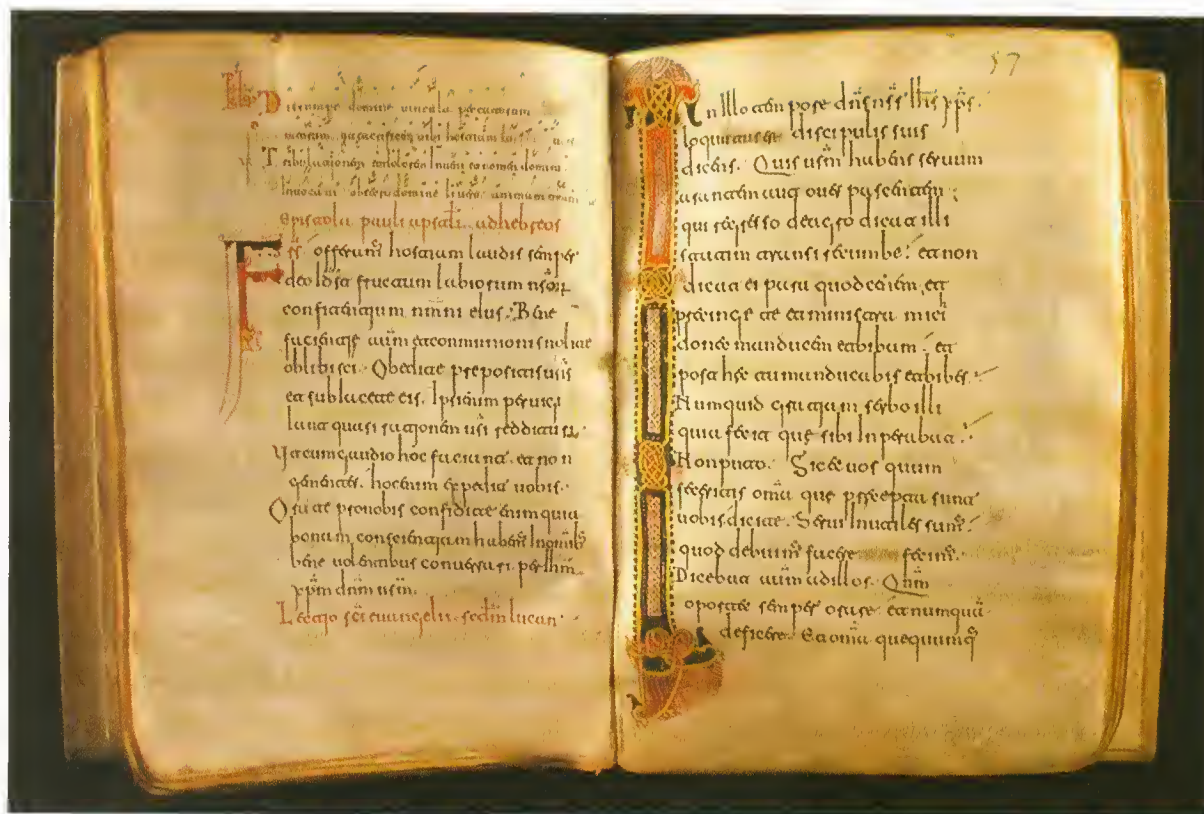 Disrumpe domine uincula peccatorum
meorum ut sacrificem tibi hostiam
Tribulationem et dolorem Inueni et nomen domini
Inuocaui obsecro domine libera animam meam
Epistola pauli apstli adhebreos
Frs. offeramꝰ hostiam laudis semper
deo Id est fructum labiorum nsorum
confitentium nmni eius. Bene
facientie aum et communionis nolite
oblibisci. Obedite prepositis usis
et subiacete eis. Ipsi enim peruigi
lant quasi rationem usi reddituri.
Ut cum gaudio hoc faciant. et non
gementes. hoc enim expedit uobis.
Orate pronobis confidite enim quia
bonam conscientiam habemꝰ Inomnibꝰ
bene uolentibus conuersari. per ihm
xpm dnm nsm.
Lectio sci euangelii secdm lucan.
57
In Illo tempore dns nsr ihs xps.
loquutus est discipulis suis
dicens. Quis usm habens seruum
arantem aut oues pascentem;
qui regresso de agro dicat illi
statim transi recumbe. et non
dicat ei para quod cenem et
precinge te et ministra mici
donec manducem et bibam. et
post hec tu manducabis et bibes.
Numquid gratiam serbo illi
quia fecit que sibi Inperabat.
Non puto. Sic et uos quum
feceritis oma que precepta sunt
uobis dicite. Serui Inutiles sumꝰ.
quod debuimꝰ facere fecimꝰ.
Dicebat aum adillos. Qnm
oportet semper orare et numquam
deficere. Et oma quequumqꝫ